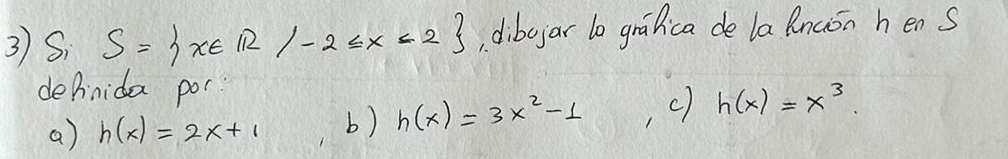 3) Si S = { x ∈ ℝ / -2 ≤ x ≤ 2 }, dibujar la gráfica de la función h en S
definida por:
a) h(x) = 2x+1 , b) h(x) = 3x²-1 , c) h(x) = x³.